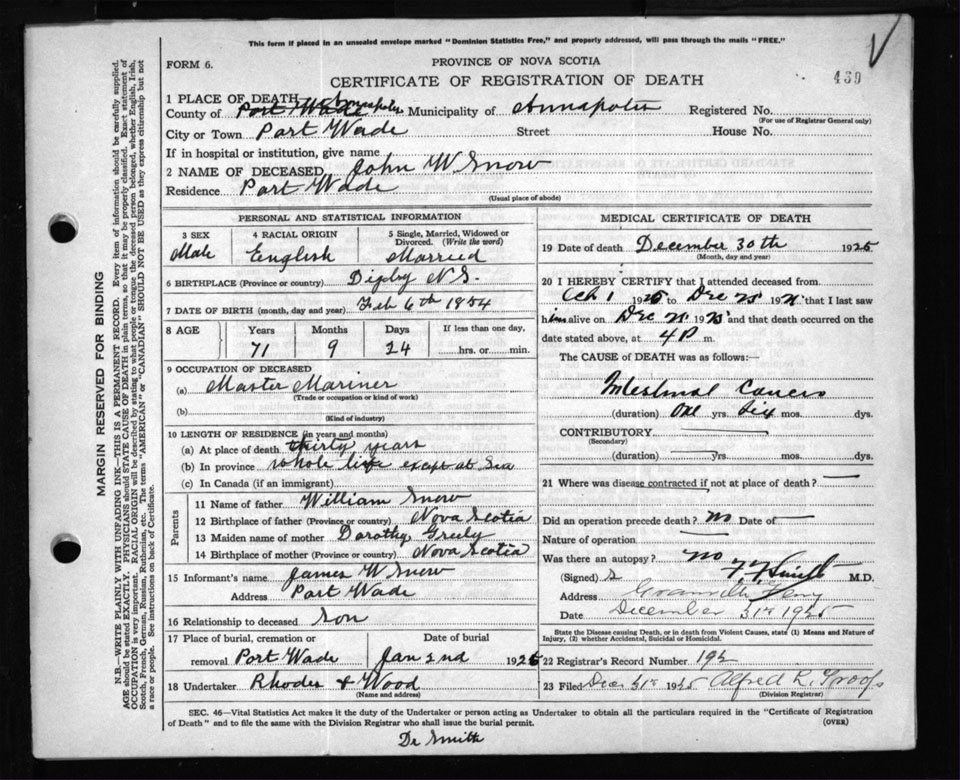 This form if placed in an unsealed envelope marked "Dominion Statistics Free," and properly addressed, will pass through the mails "FREE."
FORM 6.
PROVINCE OF NOVA SCOTIA
439
CERTIFICATE OF REGISTRATION OF DEATH
1 PLACE OF DEATH
County of Port Wade Annapolis Municipality of Annapolis Registered No.
(For use of Registrar General only)
City or Town Port Wade Street House No.
If in hospital or institution, give name
2 NAME OF DECEASED John W Snow
Residence Port Wade
(Usual place of abode)
PERSONAL AND STATISTICAL INFORMATION
3 SEX 4 RACIAL ORIGIN 5 Single, Married, Widowed or Divorced. (Write the word)
Male English Married
6 BIRTHPLACE (Province or country) Digby N S.
7 DATE OF BIRTH (month, day and year) Feb 6th 1854
8 AGE Years Months Days If less than one day,
71 9 24 hrs. or min.
9 OCCUPATION OF DECEASED
(a) Master Mariner
(Trade or occupation or kind of work)
(b)
(Kind of industry)
10 LENGTH OF RESIDENCE (in years and months)
(a) At place of death thirty years
(b) In province whole life except at Sea
(c) In Canada (if an immigrant)
Parents
11 Name of father William Snow
12 Birthplace of father (Province or country) Nova Scotia
13 Maiden name of mother Dorothy Greely
14 Birthplace of mother (Province or country) Nova Scotia
15 Informant's name James W Snow
Address Port Wade
16 Relationship to deceased Son
17 Place of burial, cremation or Date of burial
removal Port Wade Jan 2nd 1926
18 Undertaker Rhodes & Wood
(Name and address)
MEDICAL CERTIFICATE OF DEATH
19 Date of death December 30th 1925
(Month, day and year)
20 I HEREBY CERTIFY that I attended deceased from
Oct 1 1925 to Dec 192 that I last saw
him alive on Dec 192 and that death occurred on the
date stated above, at 4 P m.
The CAUSE of DEATH was as follows:
Intestinal Cancer
(duration) One yrs. Six mos. dys.
CONTRIBUTORY
(Secondary)
(duration) yrs. mos. dys.
21 Where was disease contracted if not at place of death?
Did an operation precede death? no Date of
Nature of operation
Was there an autopsy? no
(Signed) Smith M.D.
Address Granville Ferry
Date December 31st 1925
State the Disease causing Death, or in death from Violent Causes, state (1) Means and Nature of Injury, (2) whether Accidental, Suicidal or Homicidal.
22 Registrar's Record Number 192
23 Filed Dec 31st 1925 Alfred L.
(Division Registrar)
SEC. 46—Vital Statistics Act makes it the duty of the Undertaker or person acting as Undertaker to obtain all the particulars required in the "Certificate of Registration
of Death" and to file the same with the Division Registrar who shall issue the burial permit. (OVER)
Dr Smith
MARGIN RESERVED FOR BINDING
N.B.—WRITE PLAINLY WITH UNFADING INK—THIS IS A PERMANENT RECORD. Every item of information should be carefully supplied.
AGE should be stated EXACTLY. PHYSICIANS should STATE CAUSE OF DEATH in plain terms, so that it may be properly classified. Exact statement of
OCCUPATION is very important. RACIAL ORIGIN will be described by stating to what people or tongue the deceased person belonged, whether English, Irish,
Scotch, French, German, Russian, Ruthenian, etc. The terms "AMERICAN" or "CANADIAN" SHOULD NOT BE USED as they express citizenship but not
a race or people. See instructions on back of Certificate.